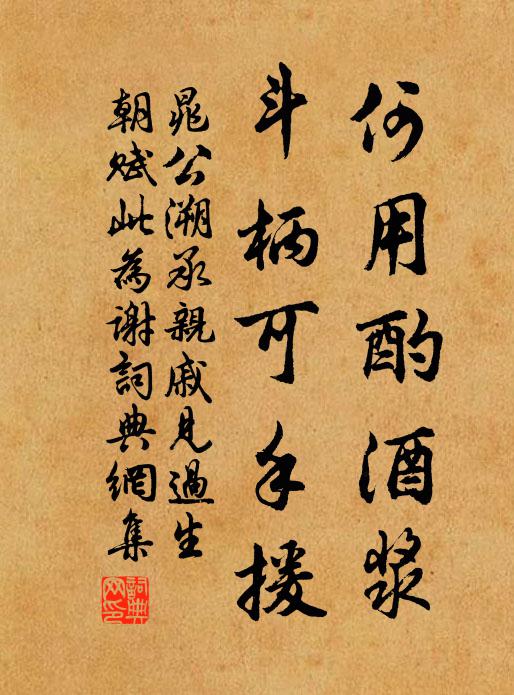 何用酌酒漿
斗柄可手援
晁公溯承親戚見過生
朝賦此為謝詞典網集
詞典網印